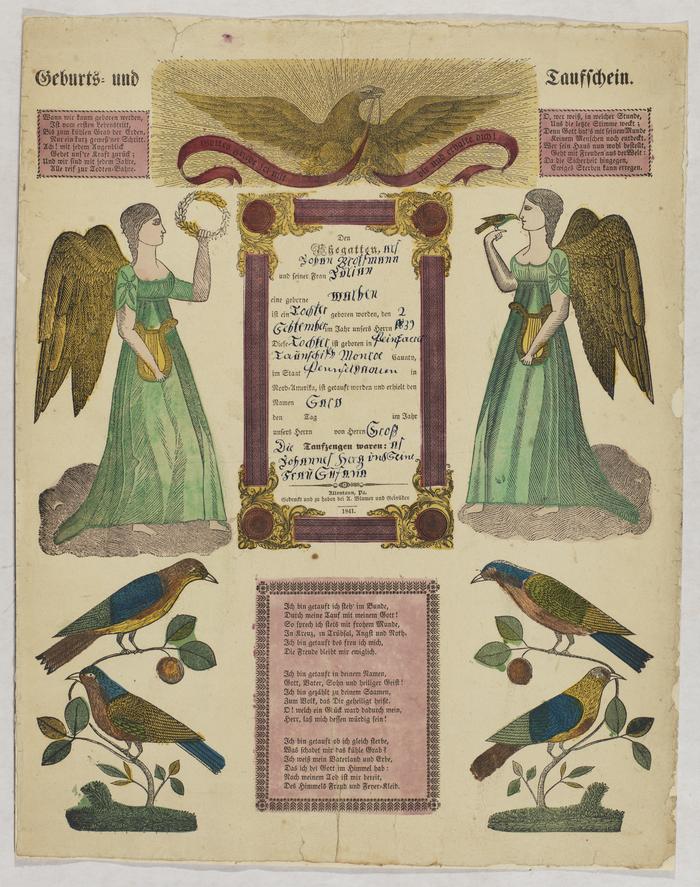 Geburts- und
Taufschein.
Wann wir kaum geboren werden,
Ist vom ersten Lebenstritt,
Bis zum kühlen Grab der Erden,
Nur ein kurz gemeß'ner Schritt.
Ach! mit jedem Augenblick
Gehet uns're Kraft zurück;
Und wir sind mit jedem Jahre,
Alle reif zur Todten-Bahre.
O, wer weiß, in welcher Stunde,
Uns die letzte Stimme weckt;
Denn Gott hat's mit seinem Munde
Keinem Menschen noch entdeckt.
Wer sein Haus nun wohl bestellt,
Geht mit Freuden aus der Welt;
Da die Sicherheit hingegen,
Ewiges Sterben kann erregen.
Den
Ehegatten, als
Johan
und seiner Frau Julian
eine geborne
ist ein Tochter geboren worden, den 2
September im Jahr unsers Herrn 1839
Diese Tochter ist geboren in
Taunschip Monroe Caunty,
im Staat Pennsylvanien in
Nord-Amerika, ist getauft worden und erhielt den
Namen Sara
den Tag im Jahr
unsers Herrn von Herrn Groß
Die Taufzeugen waren: als
Johannes Herz und Seine
Frau Susana
Allentaun, Pa.
Gedruckt und zu haben bei A. Blumer und Gebrüder
1841.
Ich bin getauft ich steh' im Bunde,
Durch meine Tauf mit meinem Gott!
So sprech ich stets mit frohem Munde,
In Kreuz, in Trübsal, Angst und Noth.
Ich bin getauft des freu ich mich,
Die Freude bleibt mir ewiglich.
Ich bin getauft in deinem Namen,
Gott, Vater, Sohn und heiliger Geist!
Ich bin gezählt zu deinem Saamen,
Zum Volk, das Dir geheiligt heißt.
O! welch ein Glück ward dadurch mein,
Herr, laß mich dessen würdig sein!
Ich bin getauft ob ich gleich sterbe,
Was schadet mir das kühle Grab?
Ich weiß mein Vaterland und Erbe,
Das ich bei Gott im Himmel hab:
Nach meinem Tod ist mir bereit,
Des Himmels Freud und Feyer-Kleid.